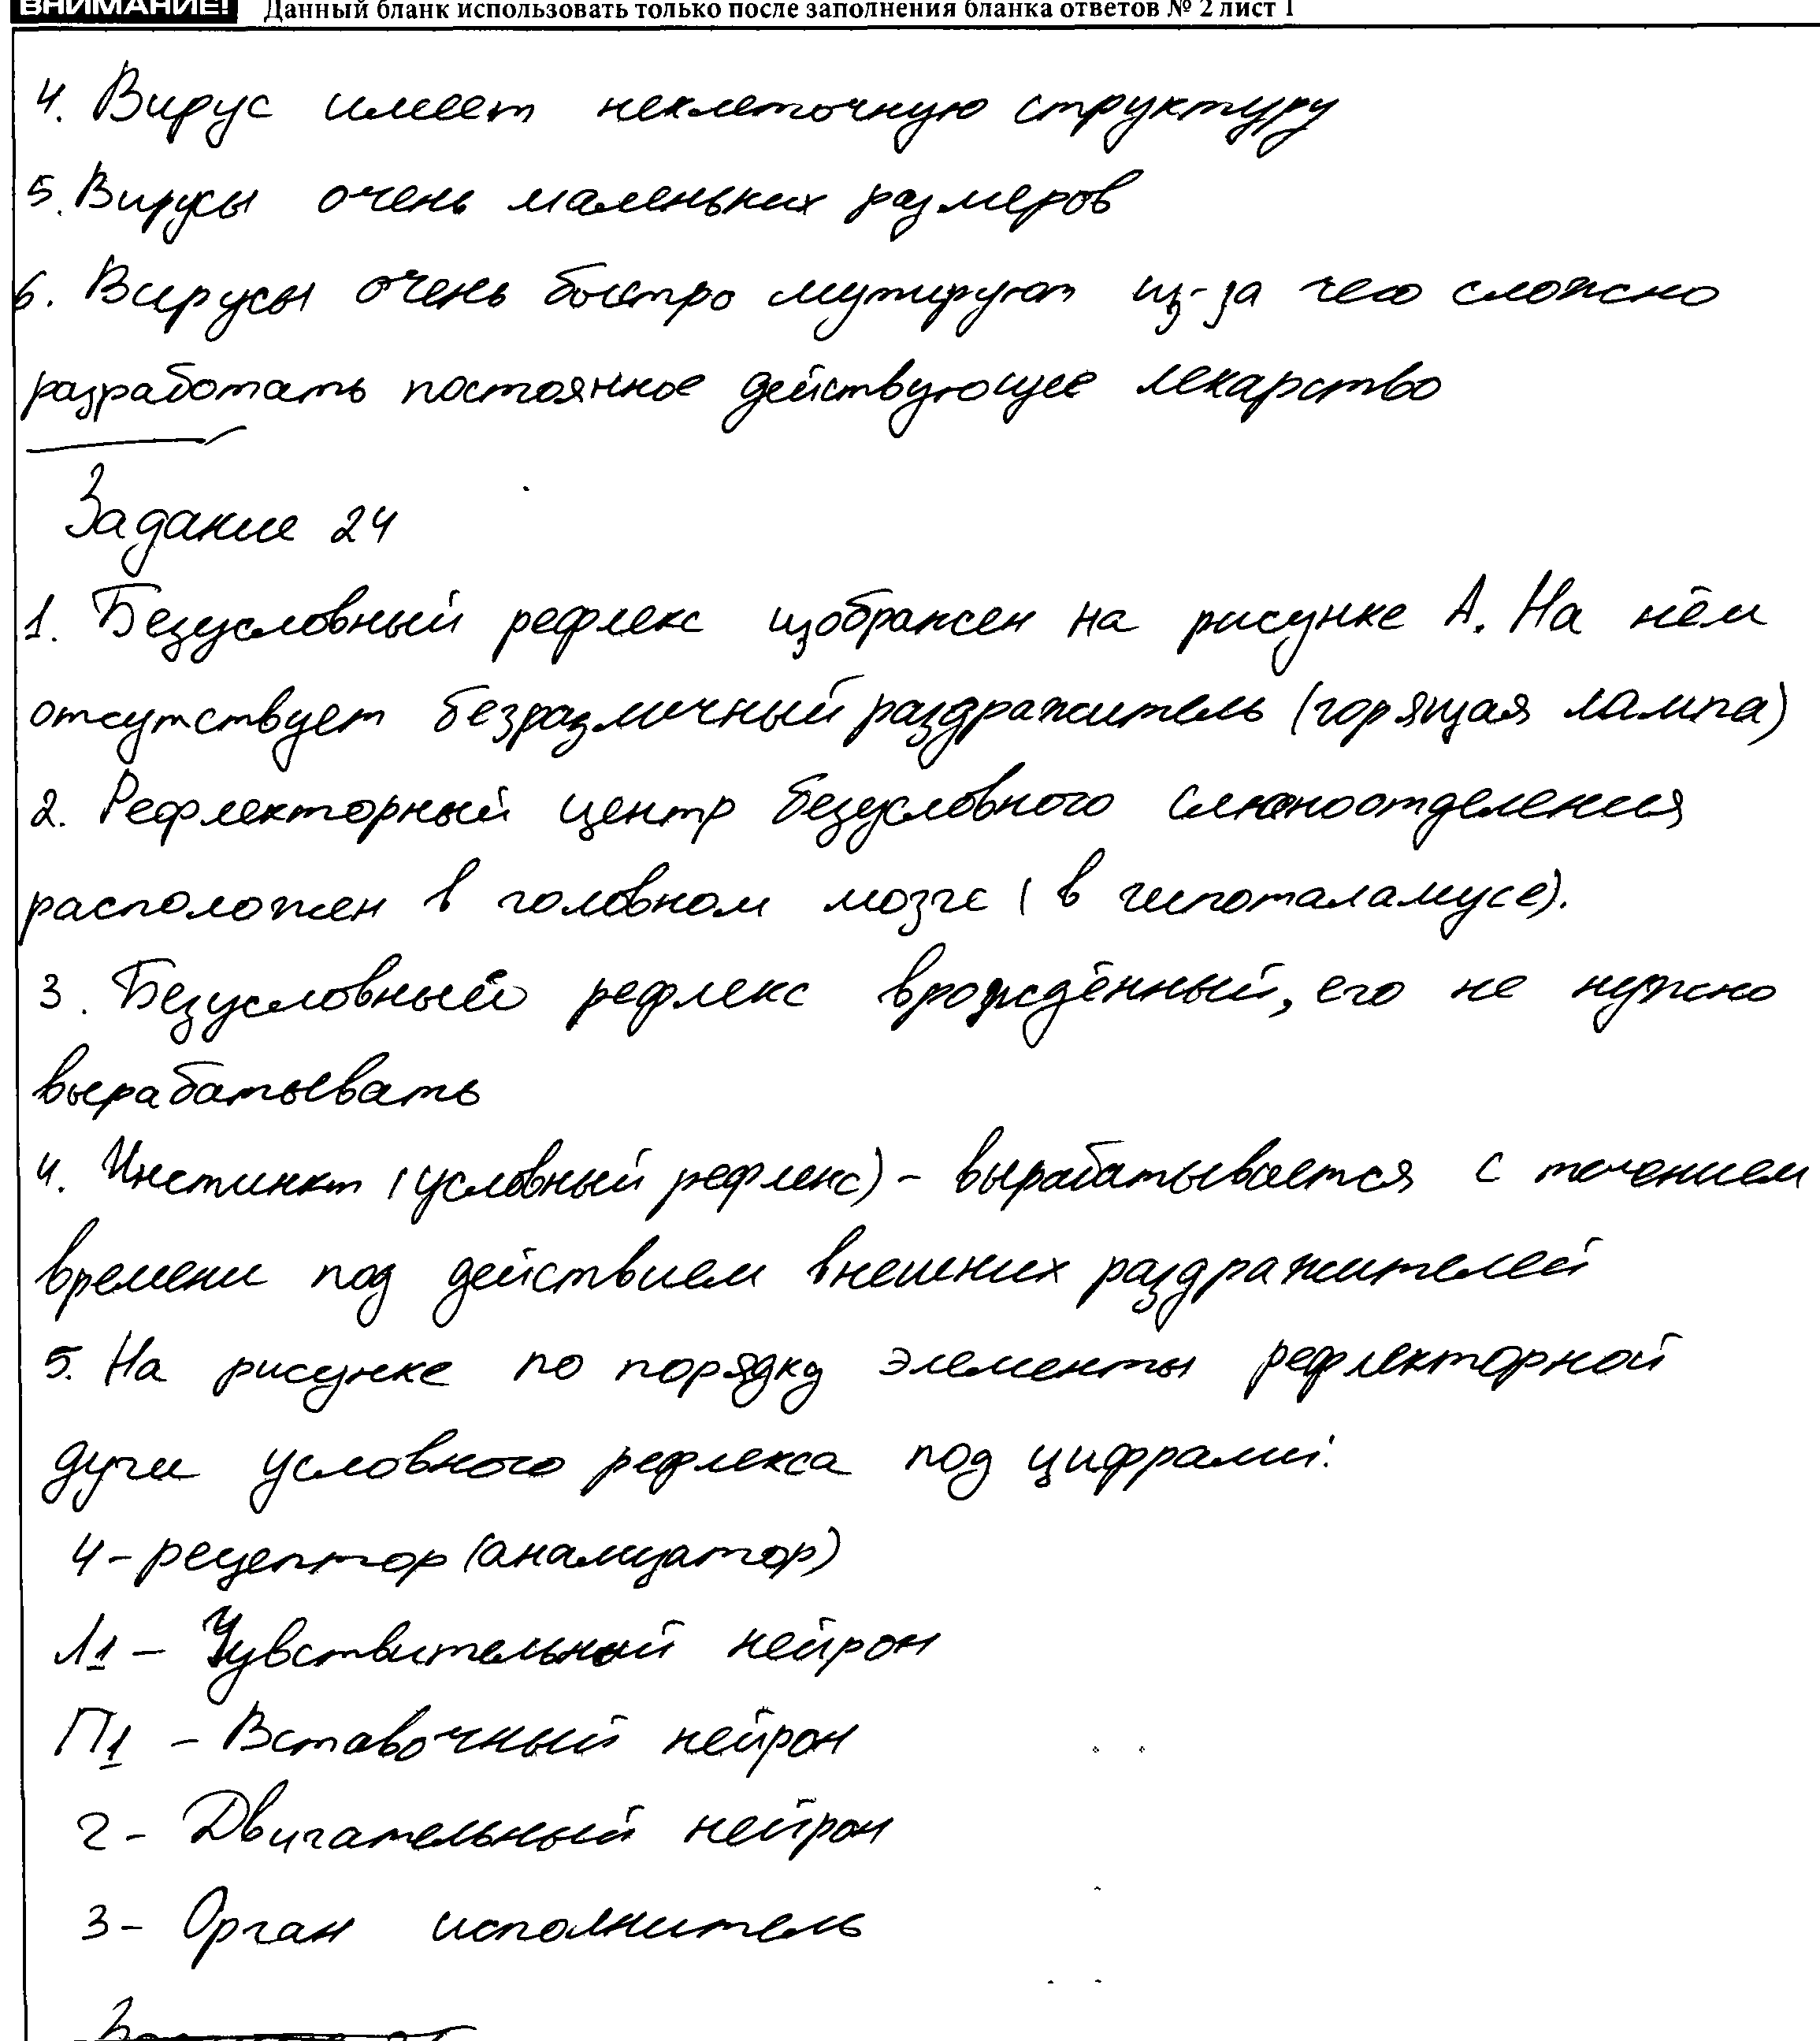 ВНИМАНИЕ! Данный бланк использовать только после заполнения бланка ответов № 2 лист 1
4. Вирус имеет неклеточную структуру
5. Вирусы очень маленьких размеров
6. Вирусы очень быстро мутируют из-за чего сложно
разработать постоянное действующее лекарство
Задание 24
1. Безусловный рефлекс изображен на рисунке А. На нём
отсутствует безразличный раздражитель (горящая лампа)
2. Рефлекторный центр безусловного слюноотделения
расположен в головном мозге (в гипоталамусе).
3. Безусловный рефлекс врождённый, его не нужно
вырабатывать
4. Инстинкт (условный рефлекс) - вырабатывается с течением
времени под действием внешних раздражителей
5. На рисунке по порядку элементы рефлекторной
дуги условного рефлекса под цифрами:
4 - рецептор (анализатор)
Л1 - Чувствительный нейрон
П1 - Вставочный нейрон
2 - Двигательный нейрон
3 - Орган исполнитель